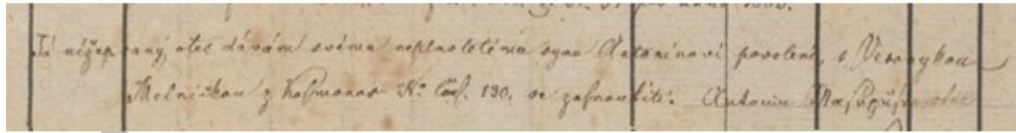 Já nížepsaný, otec dávám svému neplnoletému synu Antonínovi povolení, s Veronykou
Melničkou z Kosmonos No Cons. 190. se zasnoubiti. Antonín otec